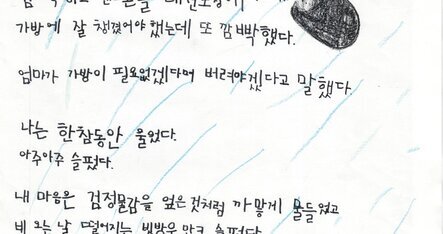 가방에 잘 챙겼어야 했는데 또 깜빡했다.
엄마가 가방이 필요없겠다며 버려야겠다고 말했다.
나는 한참동안 울었다.
아주아주 슬펐다.
내 마음은 검정물감을 엎은것처럼 까맣게 물들었고
비 오는 날 떨어지는 빗방울 만큼 슬펐다